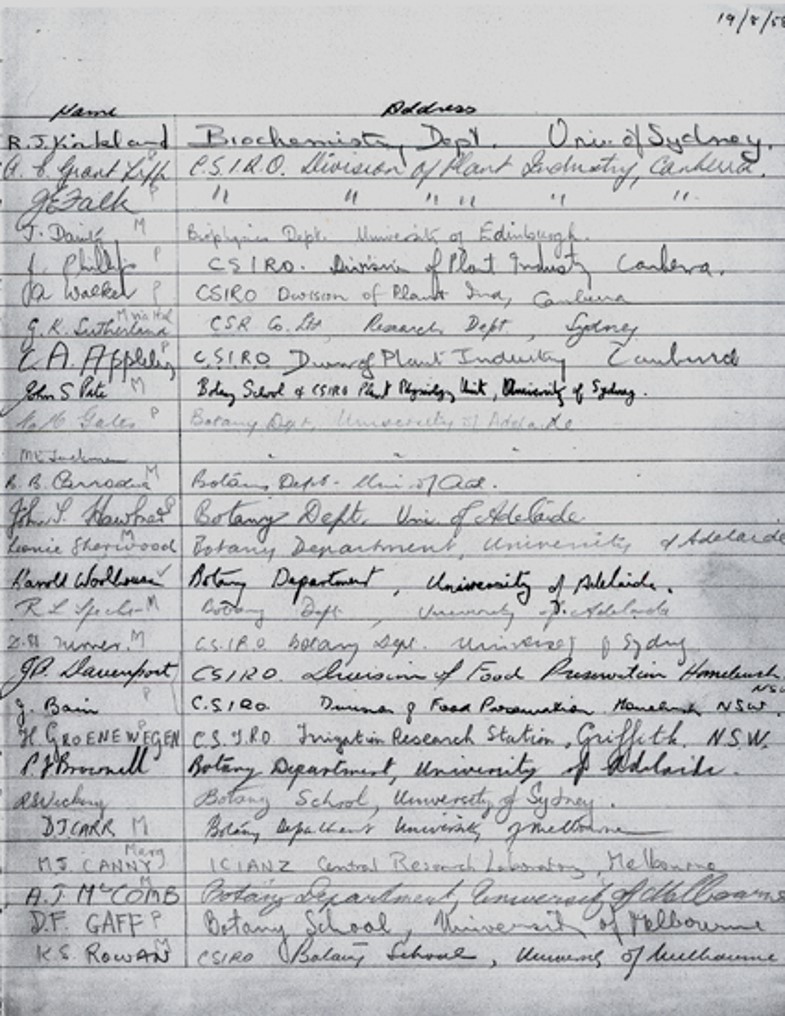 19/8/58
Name Address
R. J. Kirkland Biochemistry Dept. Univ. of Sydney.
Grant Lipp C.S.I.R.O. Division of Plant Industry, Canberra.
J E Falk " " " " " "
J. Dainty M Biophysics Dept. University of Edinburgh.
J. Phillips P CSIRO. Division of Plant Industry Canberra.
J A Walker P CSIRO Division of Plant Ind, Canberra
G. K. Sutherland CSR Co. Ltd, Research Dept, Sydney
C. A. Appleby P C.S.I.R.O. Divn of Plant Industry Canberra
John S Pate M Botany School & CSIRO Plant Physiology Unit, University of Sydney.
P Botany Dept, University of Adelaide
" " "
B. B. Carrodus M Botany Dept - Univ. of Ad.
John S. Hawker P Botany Dept. Univ. of Adelaide
Leonie Sherwood M Botany Department, University of Adelaide
Harold Woolhouse Botany Department, University of Adelaide.
R L Specht M Botany Dept. University of Adelaide
Turner. M C.S.I.R.O. Botany Dept. University of Sydney
J B. Davenport CSIRO. Division of Food Preservation Homebush NSW
J. Bain P C.S.I.R.O. Division of Food Preservation Homebush NSW.
H GROENEWEGEN P C.S.I.R.O. Irrigation Research Station, Griffith. N.S.W.
P. F Brownell Botany Department, University of Adelaide.
Vickery Botany School, University of Sydney.
D J CARR M Botany Department University of Melbourne
M. J. CANNY Marg ICIANZ Central Research Laboratory, Melbourne
A. J. McCOMB M Botany Department, University of Melbourne
D. F. GAFF P Botany School, University of Melbourne
K. S. ROWAN M CSIRO Botany School, University of Melbourne